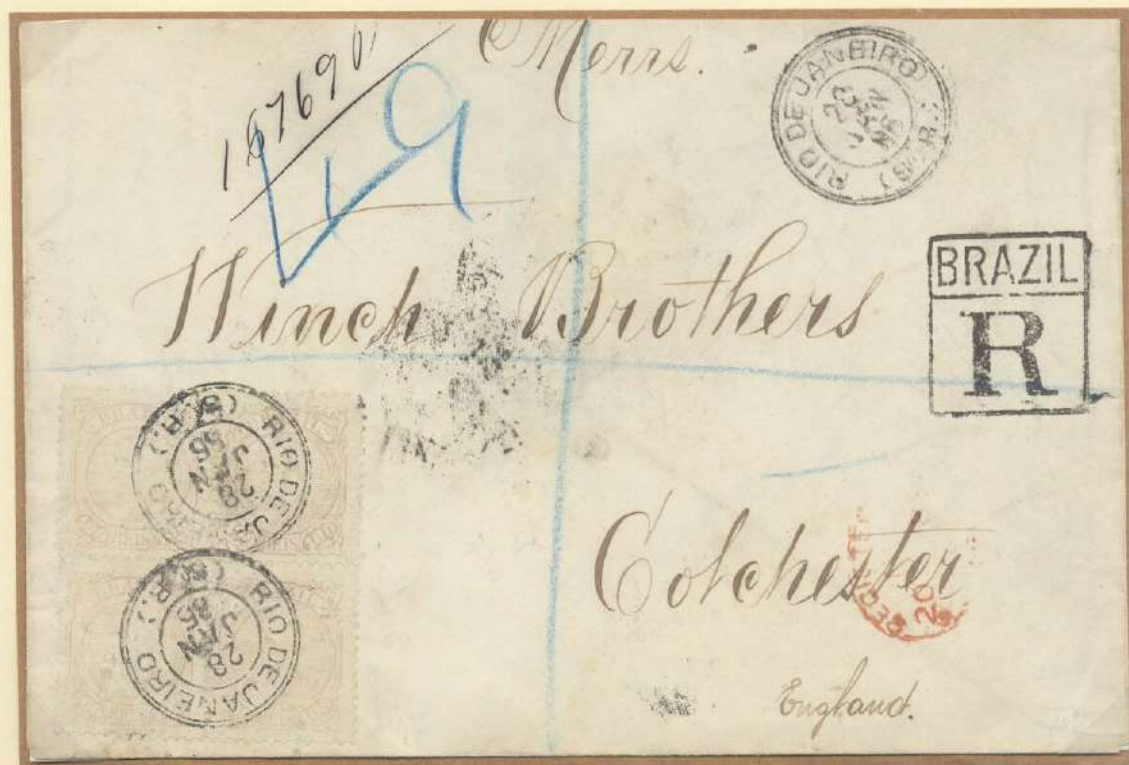 Merrs.
RIO DE JANEIRO
BRAZIL
R
Winch Brothers
RIO DE JANEIRO (S. R.)
28
JAN
85
RIO DE JANEIRO (S. R.)
28
JAN
85
Colchester
20
England.